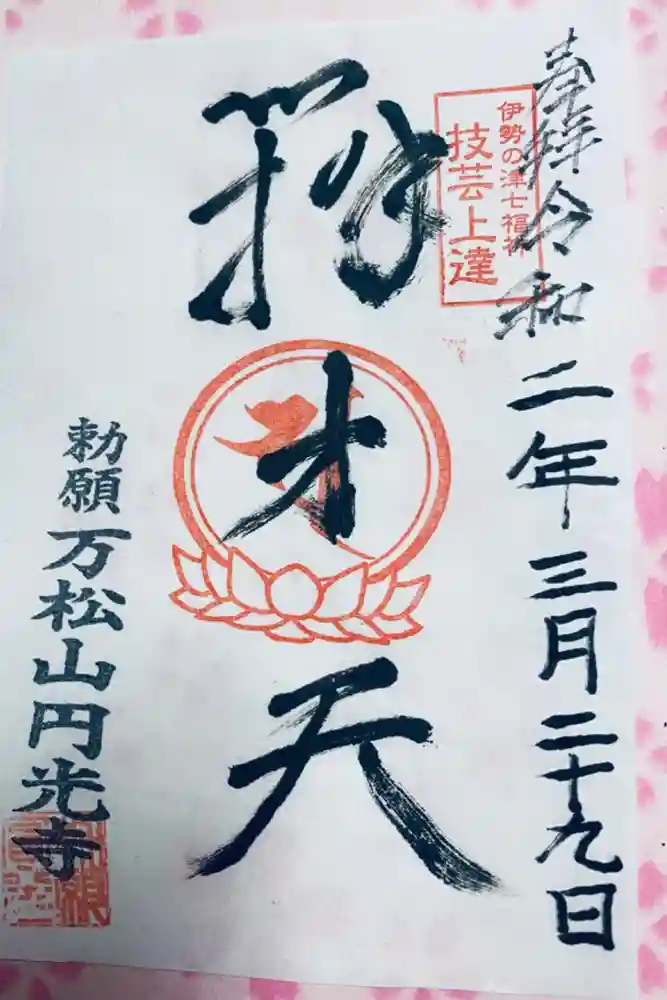 奉拝 令和二年三月二十九日
伊勢の津七福神
技芸上達
辨才天
勅願 万松山円光寺